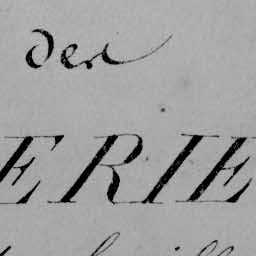 der
ERIE